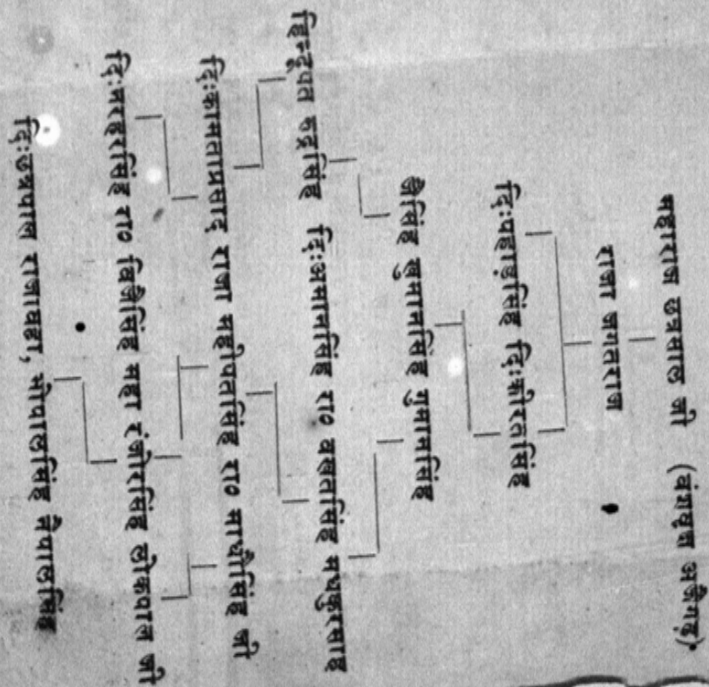 महाराज छत्रसाल जी (वंशवृक्ष अजैगढ़)
राजा जगतराज
दि:पहाड़सिंह दि:कीरतसिंह
जैसिंह खुमानसिंह गुमानसिंह
हिन्दूपत रुद्रसिंह दि:अमानसिंह रा० वखतसिंह मधकुरसाह
दि:कामताप्रसाद राजा महीपतसिंह रा० माधौसिंह जी
दि:नरहरसिंह रा० विजैसिंह महा रंजोरसिंह लोकपाल जी
दि:छत्रपाल राजावहा, भोपालसिंह नैपालसिंह